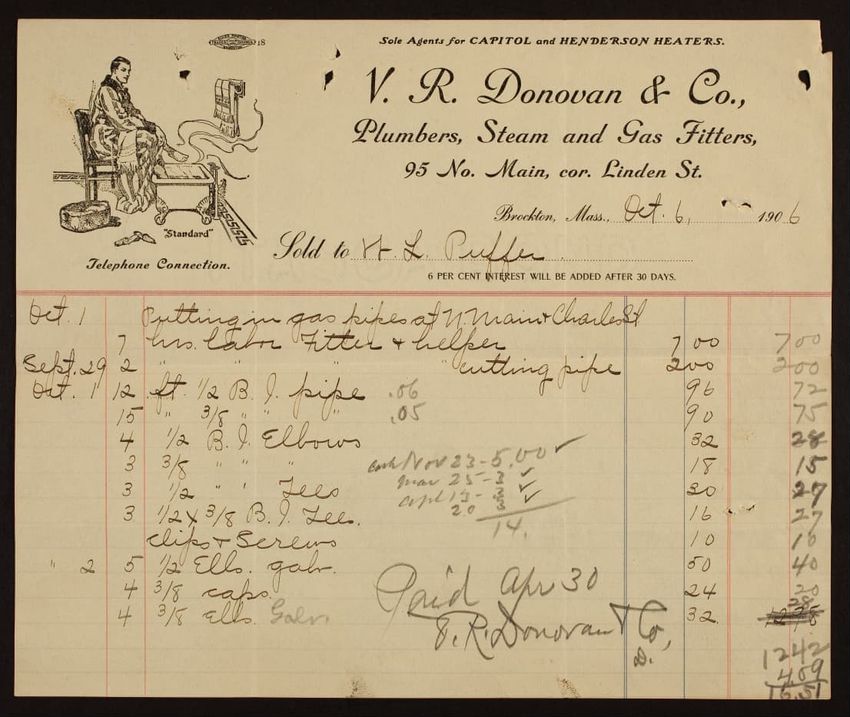 18
Sole Agents for CAPITOL and HENDERSON HEATERS.
V. R. Donovan & Co.,
Plumbers, Steam and Gas Fitters,
95 No. Main, cor. Linden St.
Brockton, Mass., Oct. 6, 1906
"Standard"
Telephone Connection.
Sold to W. L. Puffer
6 PER CENT INTEREST WILL BE ADDED AFTER 30 DAYS.
Oct. 1 Putting in gas pipes at N. Main & Charles St
7 hrs. labor Fitter & helper 7 00 7 00
Sept. 29 2 " " " cutting pipe 2 00 2 00
Oct. 1 12 ft. 1/2 B. I. pipe .06 96 72
15 " 3/8 " " " .05 90 75
4 1/2 B. I. Elbows 32 28
3 3/8 " " " 18 15
cash Nov 23 - 5.00 ✓
mar 25 - 3 ✓
3 1/2 " " Tees 30 27
apl 13 - 3 ✓
20 3
3 1/2 x 3/8 B. I. Tees. 16 27
14.
clips & Screws 10 10
" 2 5 1/2 Ells. galv. 50 40
4 3/8 caps. 24 20
4 3/8 ells. Galv. 32 28
Paid Apr 30
V. R. Donovan & Co,
1242
4.09
16.51